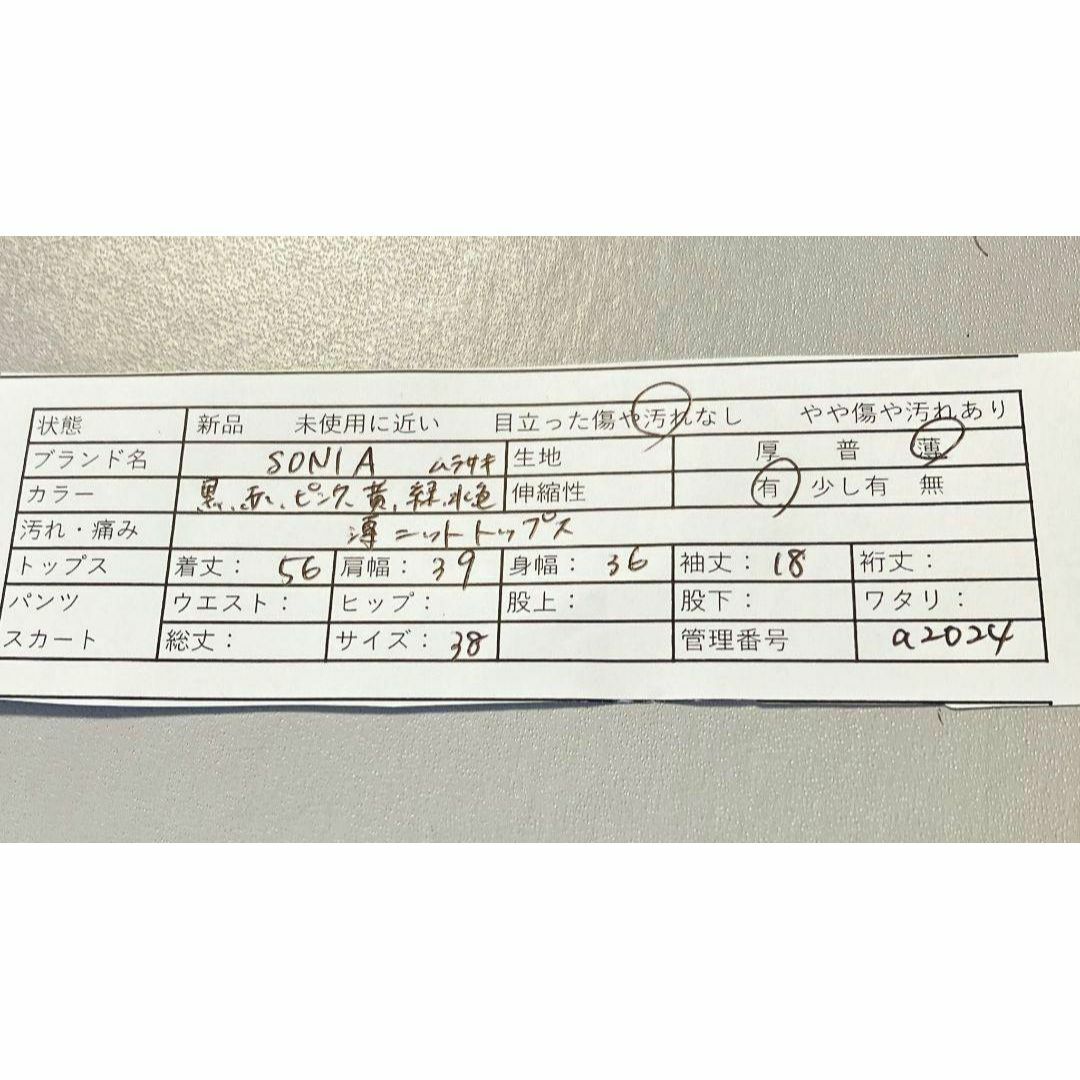 状態 新品 未使用に近い 目立った傷や汚れなし やや傷や汚れあり
ブランド名 SONIA ムラサキ 生地 厚 普 薄
カラー 黒、赤、ピンク、黄、緑、水色 伸縮性 有 少し有 無
汚れ・痛み 薄ニットトップス
トップス 着丈: 56 肩幅: 39 身幅: 36 袖丈: 18 裄丈:
パンツ ウエスト: ヒップ: 股上: 股下: ワタリ:
スカート 総丈: サイズ: 38 管理番号 a2024